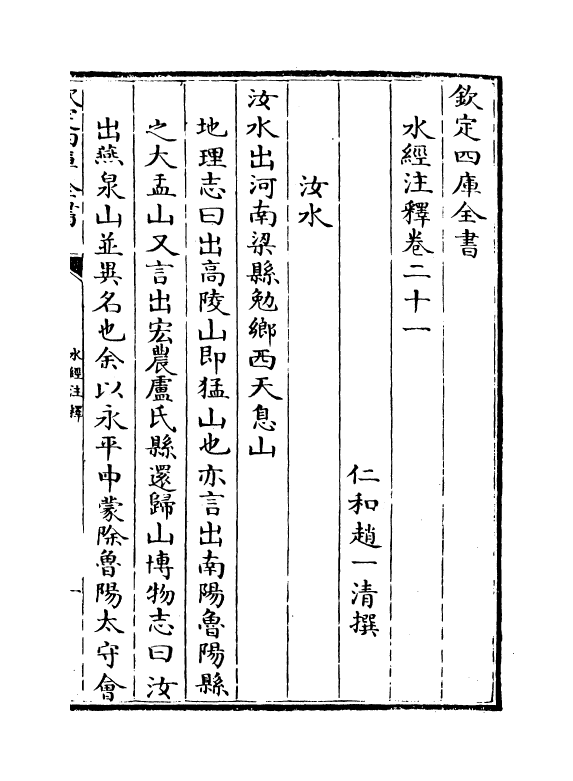 欽定四庫全書
水經注釋卷二十一
仁和趙一清撰
汝水
汝水出河南梁縣勉鄉西天息山
地理志曰出高陵山即猛山也亦言出南陽魯陽縣
之大盂山又言出宏農盧氏縣還歸山博物志曰汝
出燕泉山並異名也余以永平中蒙除魯陽太守會
欽定四庫全書
水經注釋
一